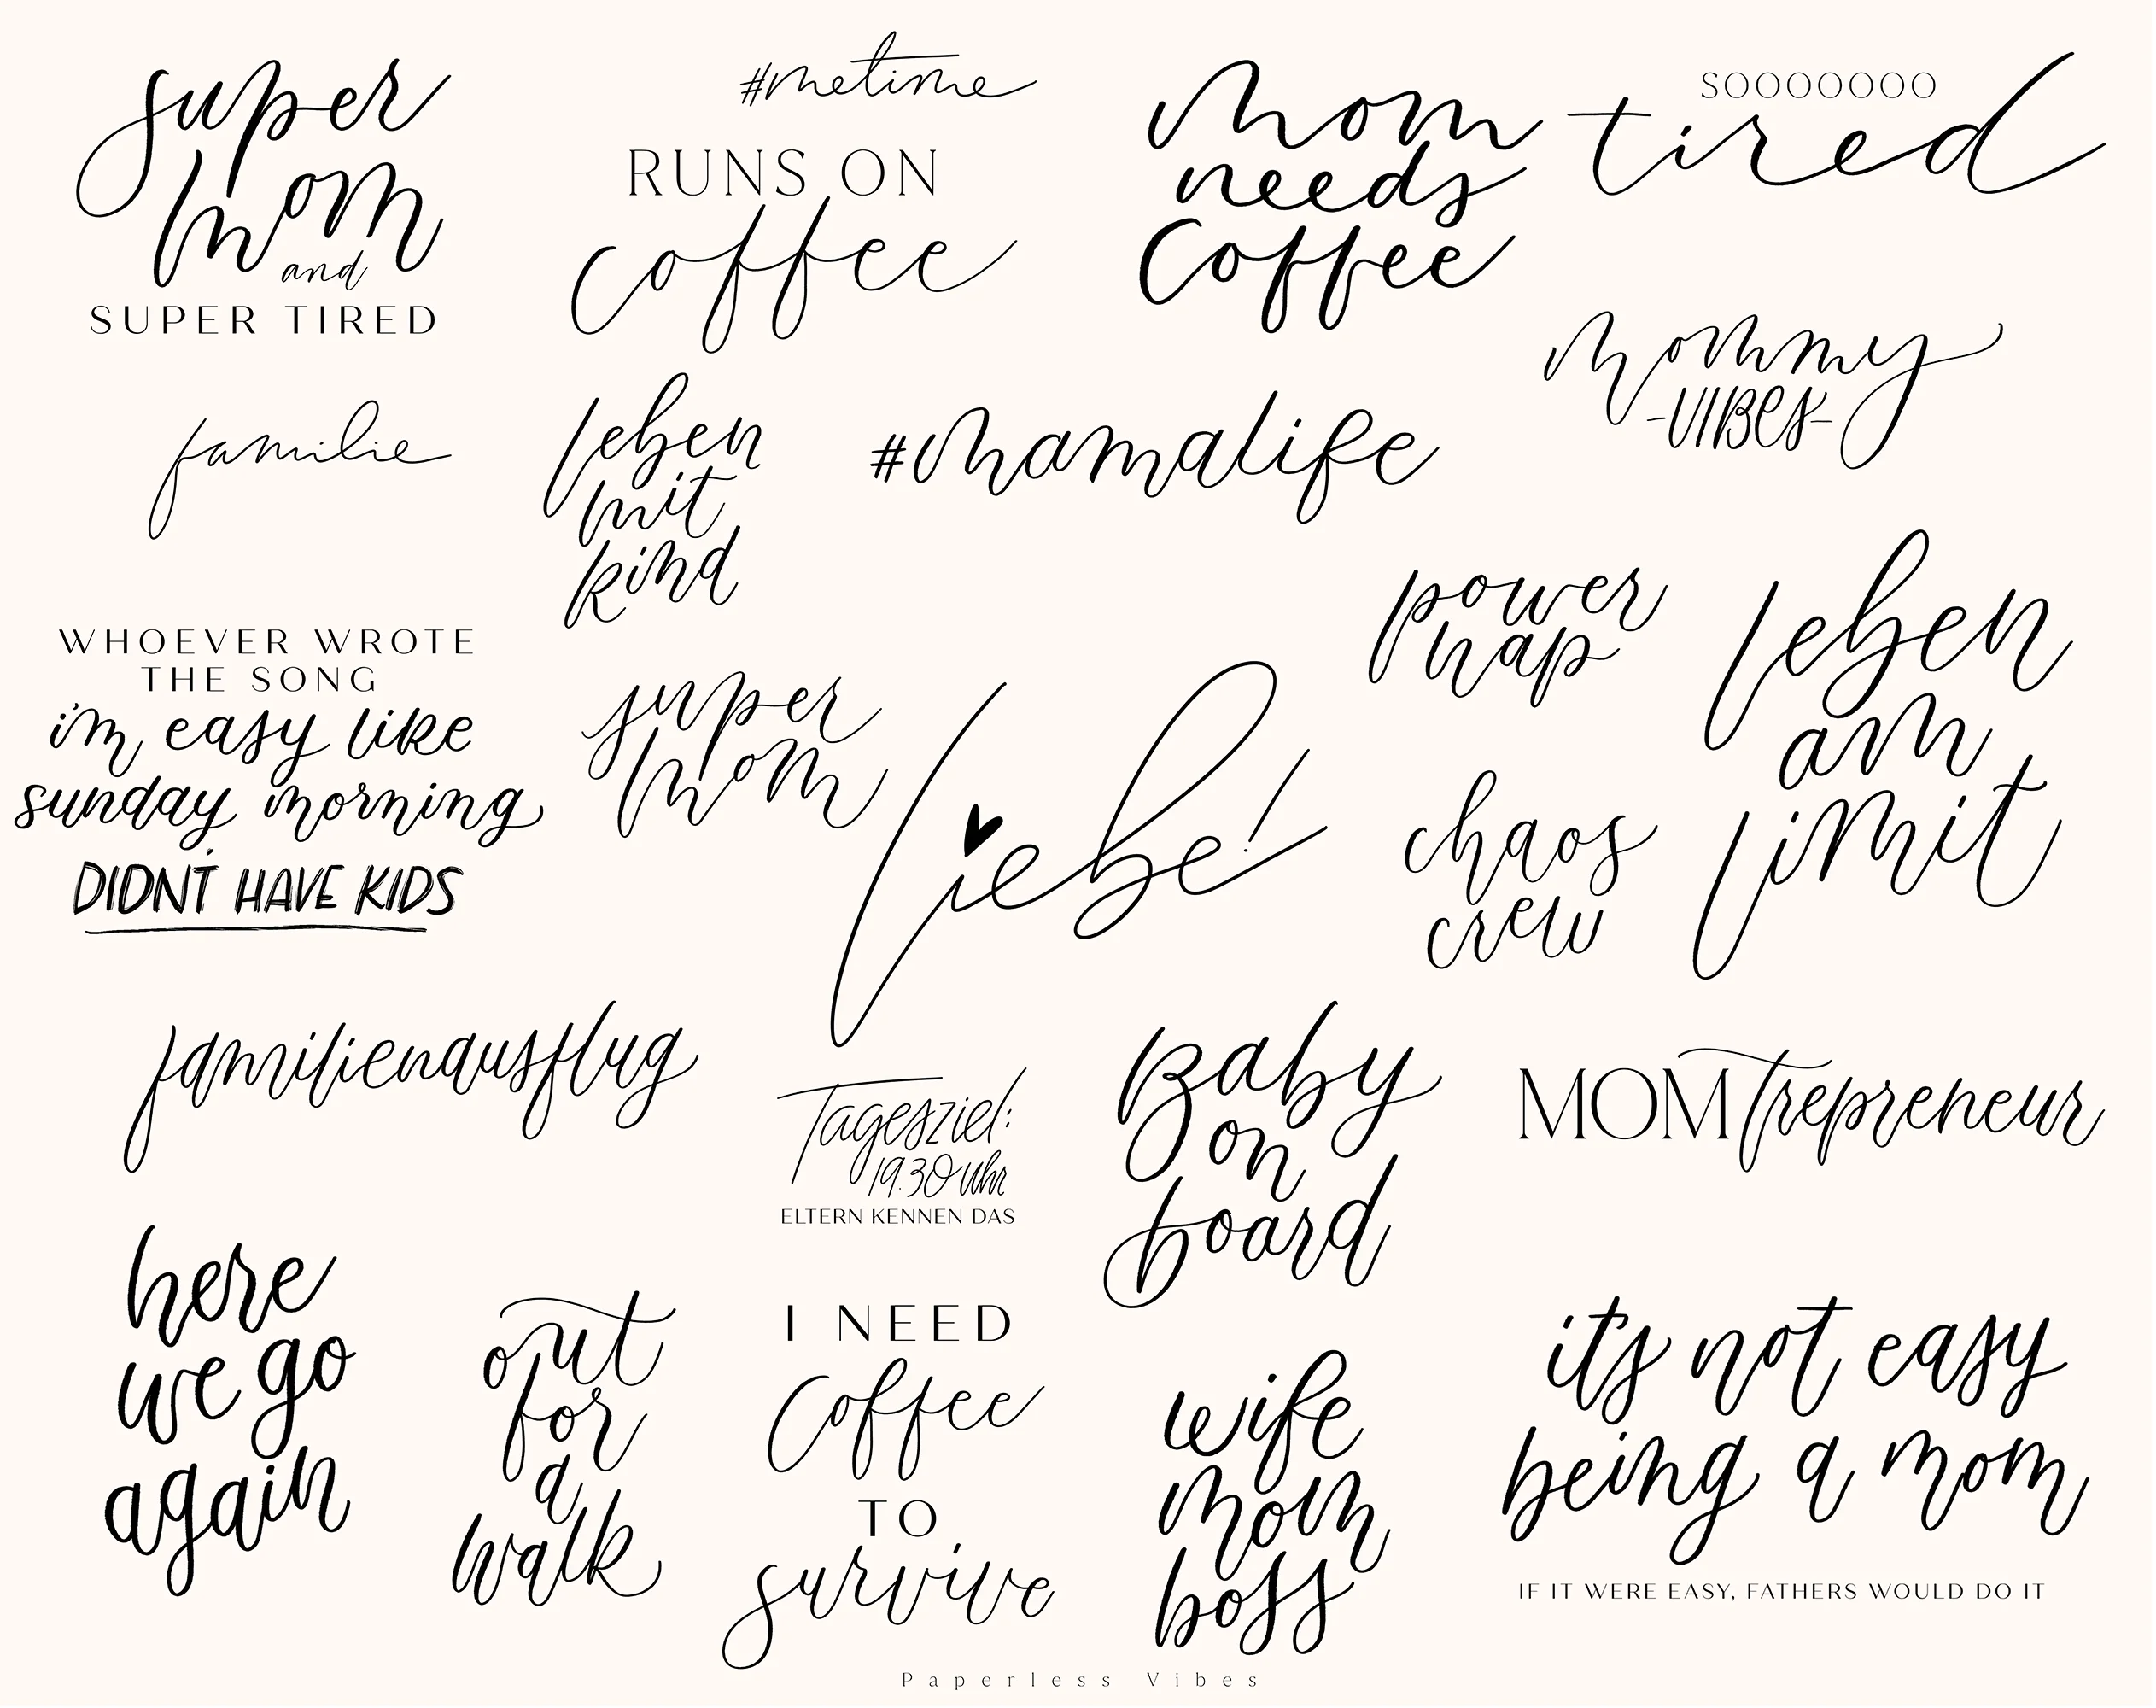 super
mom
and
SUPER TIRED
#metime
RUNS ON
coffee
mom
needs
coffee
SOOOOOOO
tired
mommy
-VIBES-
familie
leben
mit
kind
#mamalife
power
nap
leben
am
limit
WHOEVER WROTE
THE SONG
i'm easy like
sunday morning
DIDN'T HAVE KIDS
super
mom
liebe!
chaos
crew
familienausflug
Tagesziel:
19.30 Uhr
ELTERN KENNEN DAS
Baby
on
board
MOMTrepreneur
here
we go
again
out
for
a
walk
I NEED
Coffee
TO
survive
wife
mom
boss
it's not easy
being a mom
IF IT WERE EASY, FATHERS WOULD DO IT
Paperless Vibes